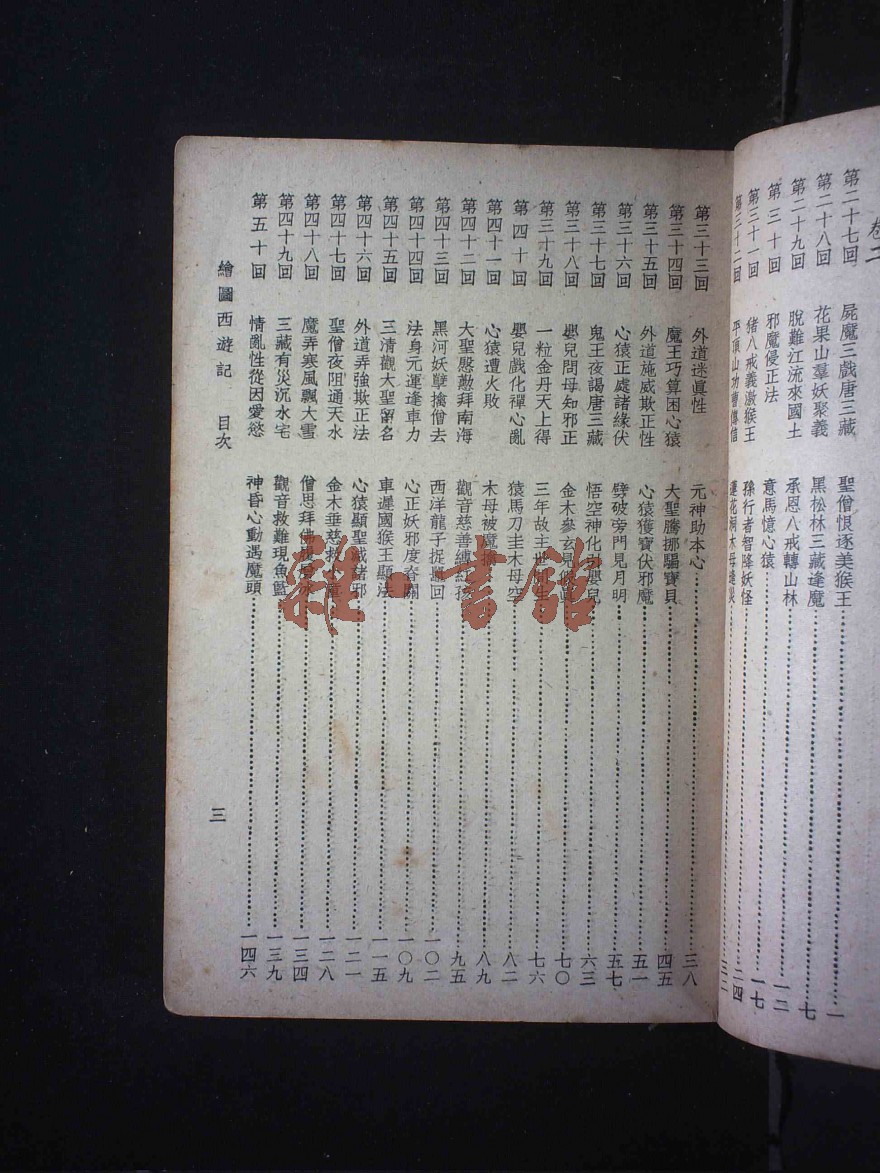 卷二
第二十七回 屍魔三戲唐三藏 聖僧恨逐美猴王 一
第二十八回 花果山羣妖聚義 黑松林三藏逢魔 七
第二十九回 脫難江流來國土 承恩八戒轉山林 一二
第三十回 邪魔侵正法 意馬憶心猿 一七
第三十一回 豬八戒義激猴王 孫行者智降妖怪 二四
第三十二回 平頂山功曹傳信 蓮花洞木母逢災
第三十三回 外道迷眞性 元神助本心 三八
第三十四回 魔王巧算困心猿 大聖騰挪騙寶貝 四五
第三十五回 外道施威欺正性 心猿獲寶伏邪魔 五一
第三十六回 心猿正處諸緣伏 劈破旁門見月明 五七
第三十七回 鬼王夜謁唐三藏 悟空神化引嬰兒 六三
第三十八回 嬰兒問母知邪正 金木參玄見 七〇
第三十九回 一粒金丹天上得 三年故主世間生 七六
第四十回 嬰兒戲化禪心亂 猿馬刀圭木母空 八二
第四十一回 心猿遭火敗 木母被魔擒 八九
第四十二回 大聖慇懃拜南海 觀音慈善縛紅孩 九五
第四十三回 黑河妖孽擒僧去 西洋龍子捉鼉回 一〇二
第四十四回 法身元運逢車力 心正妖邪度脊關 一〇九
第四十五回 三清觀大聖留名 車遲國猴王顯法 一一五
第四十六回 外道弄強欺正法 心猿顯聖滅諸邪 一二一
第四十七回 聖僧夜阻通天水 金木垂慈救小童 一二八
第四十八回 魔弄寒風飄大雪 僧思拜佛 冰 一三四
第四十九回 三藏有災沉水宅 觀音救難現魚籃 一三九
第五十回 情亂性從因愛慾 神昏心動遇魔頭 一四六
繪圖西遊記 目次 三
雜·書館